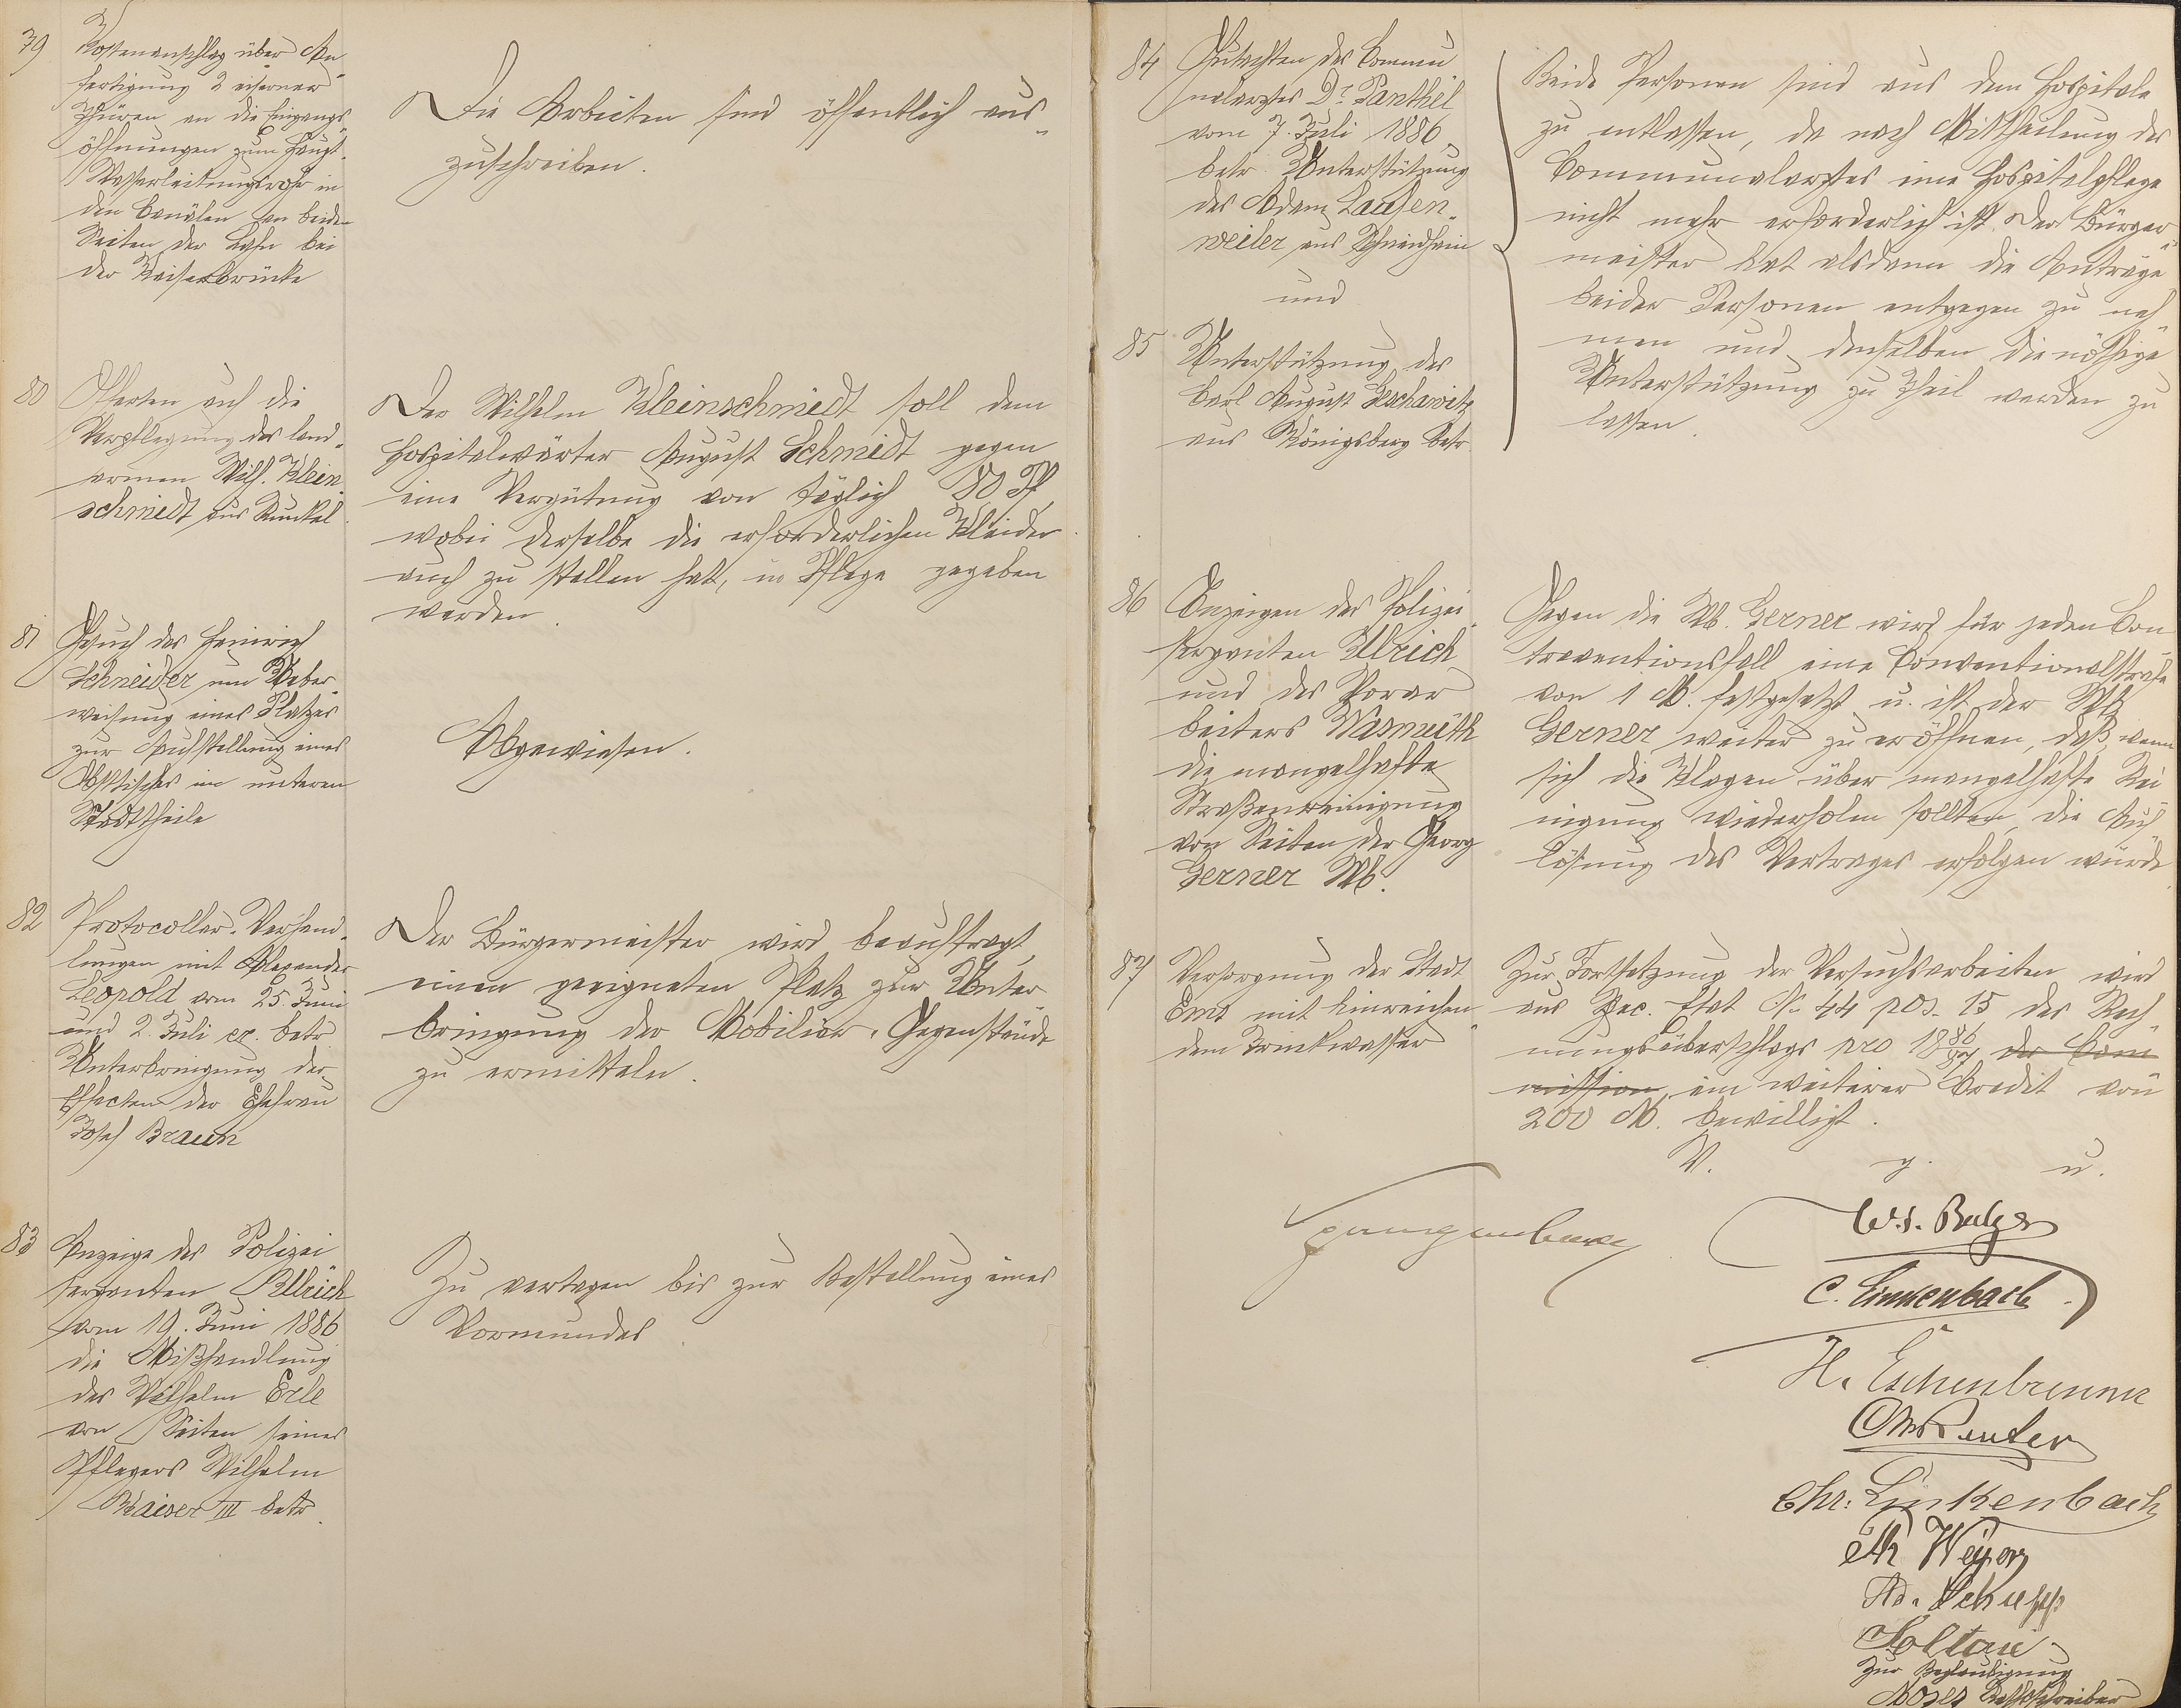 79
Kostenanschlag über An-
fertigung 2 eiserner
Thüren an die Eingangs-
öffnungen zum Haupt-
Wasserleitungsrohr in
den Canälen an beiden
Seiten der Lahn bei
der Kaiserbrücke
Die Arbeiten sind öffentlich aus-
zuschreiben.
80
Offerten auf die
Verpflegung des land-
armen Wilh. Klein
schmidt aus Runkel.
Der Wilhelm Kleinschmidt soll dem
Hospitalwärter August Schmidt gegen
eine Vergütung von täglich 80 Pf
wobei derselbe die erforderlichen Kleider
auch zu stellen hat, in Pflege gegeben
werden.
81
Gesuch des Heinrich
Schneider um Ueber-
weisung eines Platzes
zur Aufstellung eines
Obsttisches im unteren
Stadttheile
Abgewiesen.
82
Protocollar. Verhand-
lungen mit Alexander
Leopold vom 25. Juni
und 2. Juli cr. betr.
Unterbringung der
Effecten der Ehefrau
Josef Braun
Der Bürgermeister wird beauftragt,
einen geeigneten Platz zur Unter-
bringung der Mobiliar-Gegenstände
zu ermitteln.
83
Anzeige des Polizei
sergenten Ullrich
vom 19. Juni 1886
die Mißhandlung
des Wilhelm Erle
von Seiten seines
Pflegers Wilhelm
Kaiser III betr.
Zu vertagen bis zur Bestellung eines
Vormundes.
84
Gutachten des Commu
nalarztes Dr. Panthel
vom 7. Juli 1886
betr. Unterstützung
des Adam Laufen-
weiler aus
und
85
Unterstützung des
Carl August Geschawitz
aus Königsberg betr.
Beide Personen sind aus dem Hospitale
zu entlassen, da nach Mittheilung des
Communalarztes eine Hospitalpflege
nicht mehr erforderlich ist. Der Bürger-
meister hat alsdann die Anträge
beider Personen entgegen zu neh-
men und denselben die nöthige
Unterstützung zu Theil werden zu
lassen.
86
Anzeigen des Polizei-
sergenten Ullrich
und des Vorar-
beiters Wasmuth
die mangelhafte
Straßenreinigung
von Seiten der Georg
Gerner Wb.
Gegen die Wb. Gerner wird für jeden Con-
traventionsfall eine Conventionalstrafe
von 1 M. festgesetzt u. ist der Wb.
Gerner weiter zu eröffnen, daß, wenn
sich die Klagen über mangelhafte Rei-
nigung wiederholen sollten, die Auf-
lösung des Vertrages erfolgen würde.
87
Versorgung der Stadt
Ems mit hinreichen-
dem Trinkwasser
Zur Fortsetzung der Versuchsarbeiten wird
aus Spec. Etat No 44 pos. 15 des Rech-
nungsüberschlags pro 1886/87 der Com
mission, ein weiterer Credit von
200 M. bewilligt.
V. g. u.
Spangenberg
W. L. Balzer
C. Linkenbach
H. Eschenbrenner
Chr. Linkenbach
Ad. Schupp
Soltau
Zur Beglaubigung
Moses Rathsschreiber